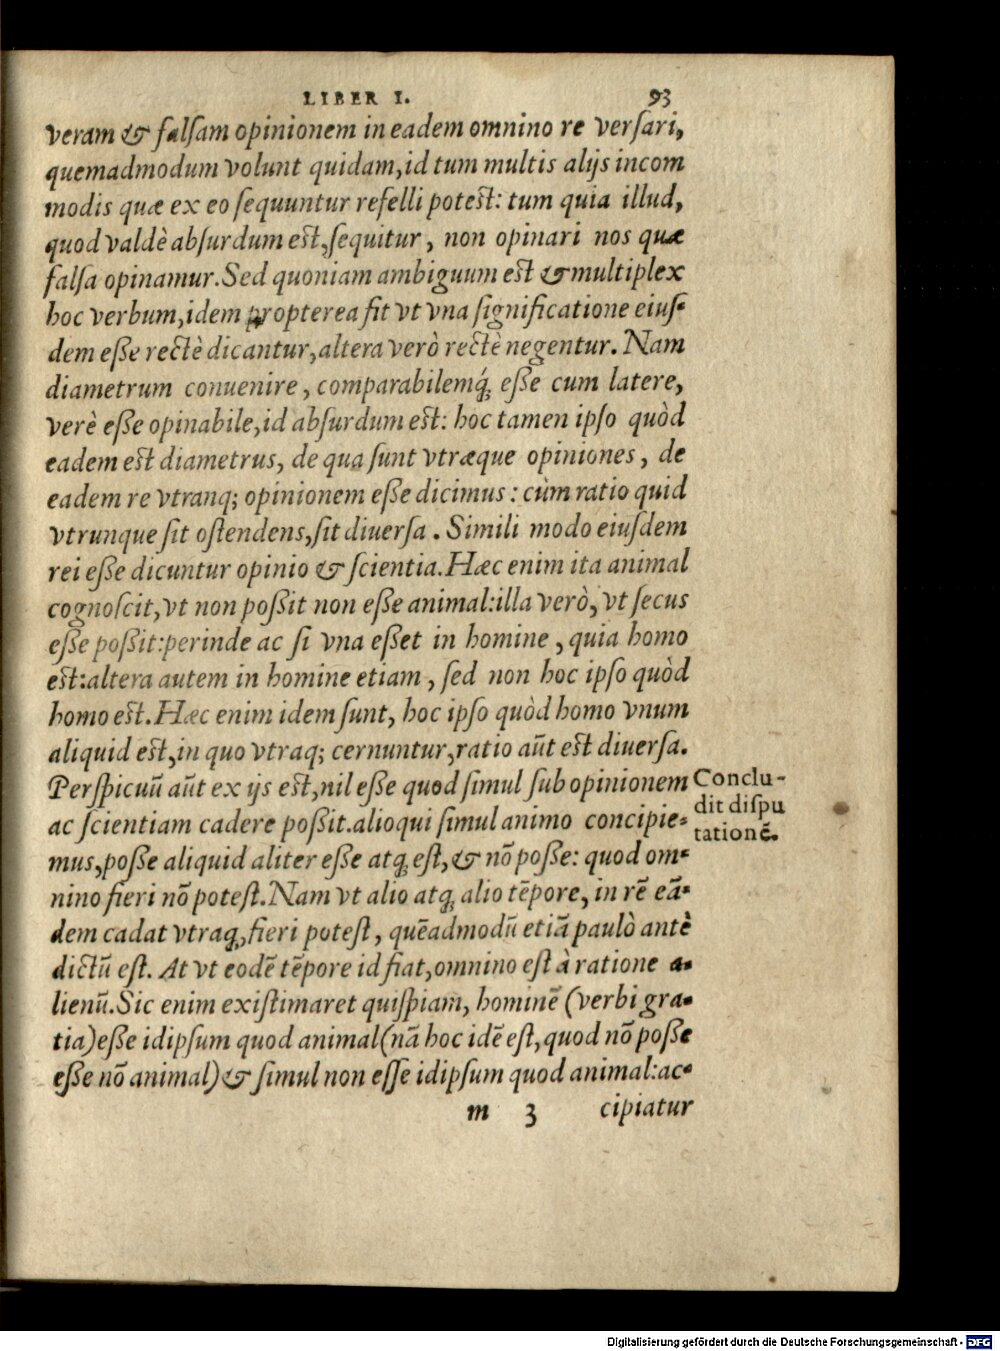 LIBER I. 93
veram & falsam opinionem in eadem omnino re versari,
quemadmodum volunt quidam, id tum multis alijs incom
modis quæ ex eo sequuntur refelli potest: tum quia illud,
quod valdè absurdum est, sequitur, non opinari nos quæ
falsa opinamur. Sed quoniam ambiguum est & multiplex
hoc verbum, idem propterea fit vt vna significatione eius-
dem esse rectè dicantur, altera verò rectè negentur. Nam
diametrum conuenire, comparabilemq́; esse cum latere,
verè esse opinabile, id absurdum est: hoc tamen ipso quòd
eadem est diametrus, de qua sunt vtræque opiniones, de
eadem re vtranq; opinionem esse dicimus: cùm ratio quid
vtrunque sit ostendens, sit diuersa. Simili modo eiusdem
rei esse dicuntur opinio & scientia. Hæc enim ita animal
cognoscit, vt non possit non esse animal: illa verò, vt secus
esse possit: perinde ac si vna esset in homine, quia homo
est: altera autem in homine etiam, sed non hoc ipso quòd
homo est. Hæc enim idem sunt, hoc ipso quòd homo vnum
aliquid est, in quo vtraq; cernuntur, ratio aūt est diuersa.
Perspicuū aūt ex ijs est, nil esse quod simul sub opinionem
ac scientiam cadere possit. alioqui simul animo concipie-
mus, posse aliquid aliter esse atq; est, & nō posse: quod om-
nino fieri nō potest. Nam vt alio atq; alio tēpore, in rē eā-
dem cadat vtraq;, fieri potest, quēadmodū etiā paulò antè
dictū est. At vt eodē tēpore id fiat, omnino est à ratione a-
lienū. Sic enim existimaret quispiam, hominē (verbi gra-
tia) esse idipsum quod animal (nā hoc idē est, quod nō posse
esse nō animal) & simul non esse idipsum quod animal: ac-
m 3 cipiatur
Conclu-
dit dispu
tationē.
Digitalisierung gefördert durch die Deutsche Forschungsgemeinschaft - DFG